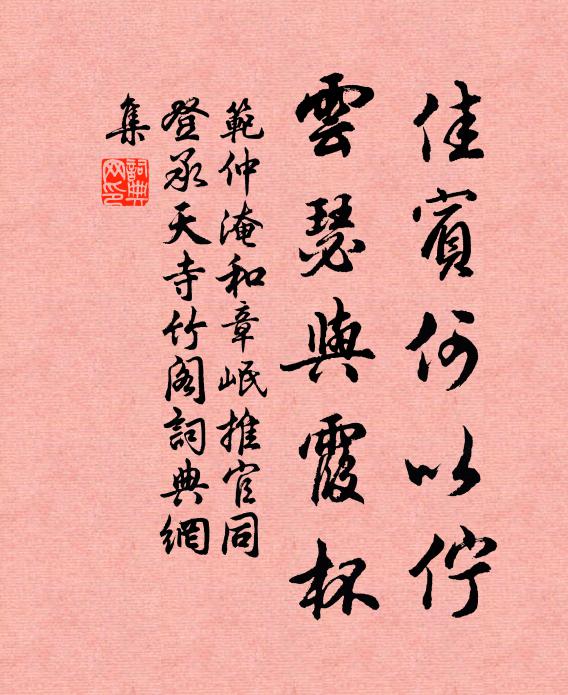 佳賓何以佇
雲瑟與霞杯
範仲淹和章岷推官同
登承天寺竹閣詞典網
集
詞典
网印